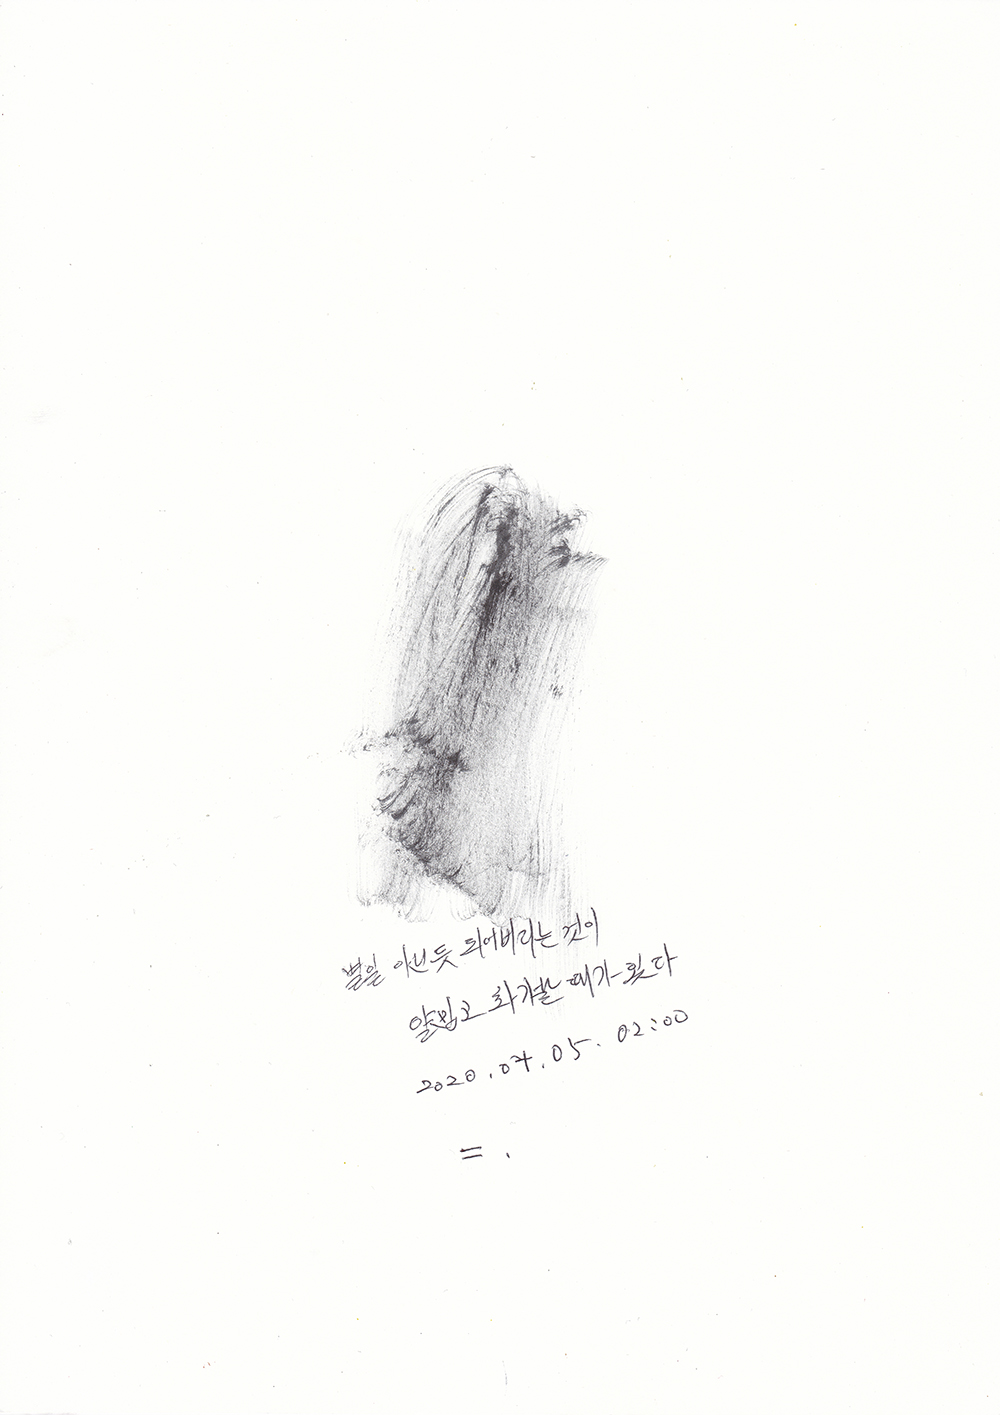 별일 아닌듯 되어버리는 것이
얄밉고 화가날 때가 있다
2020.04.05. 02:00
= .